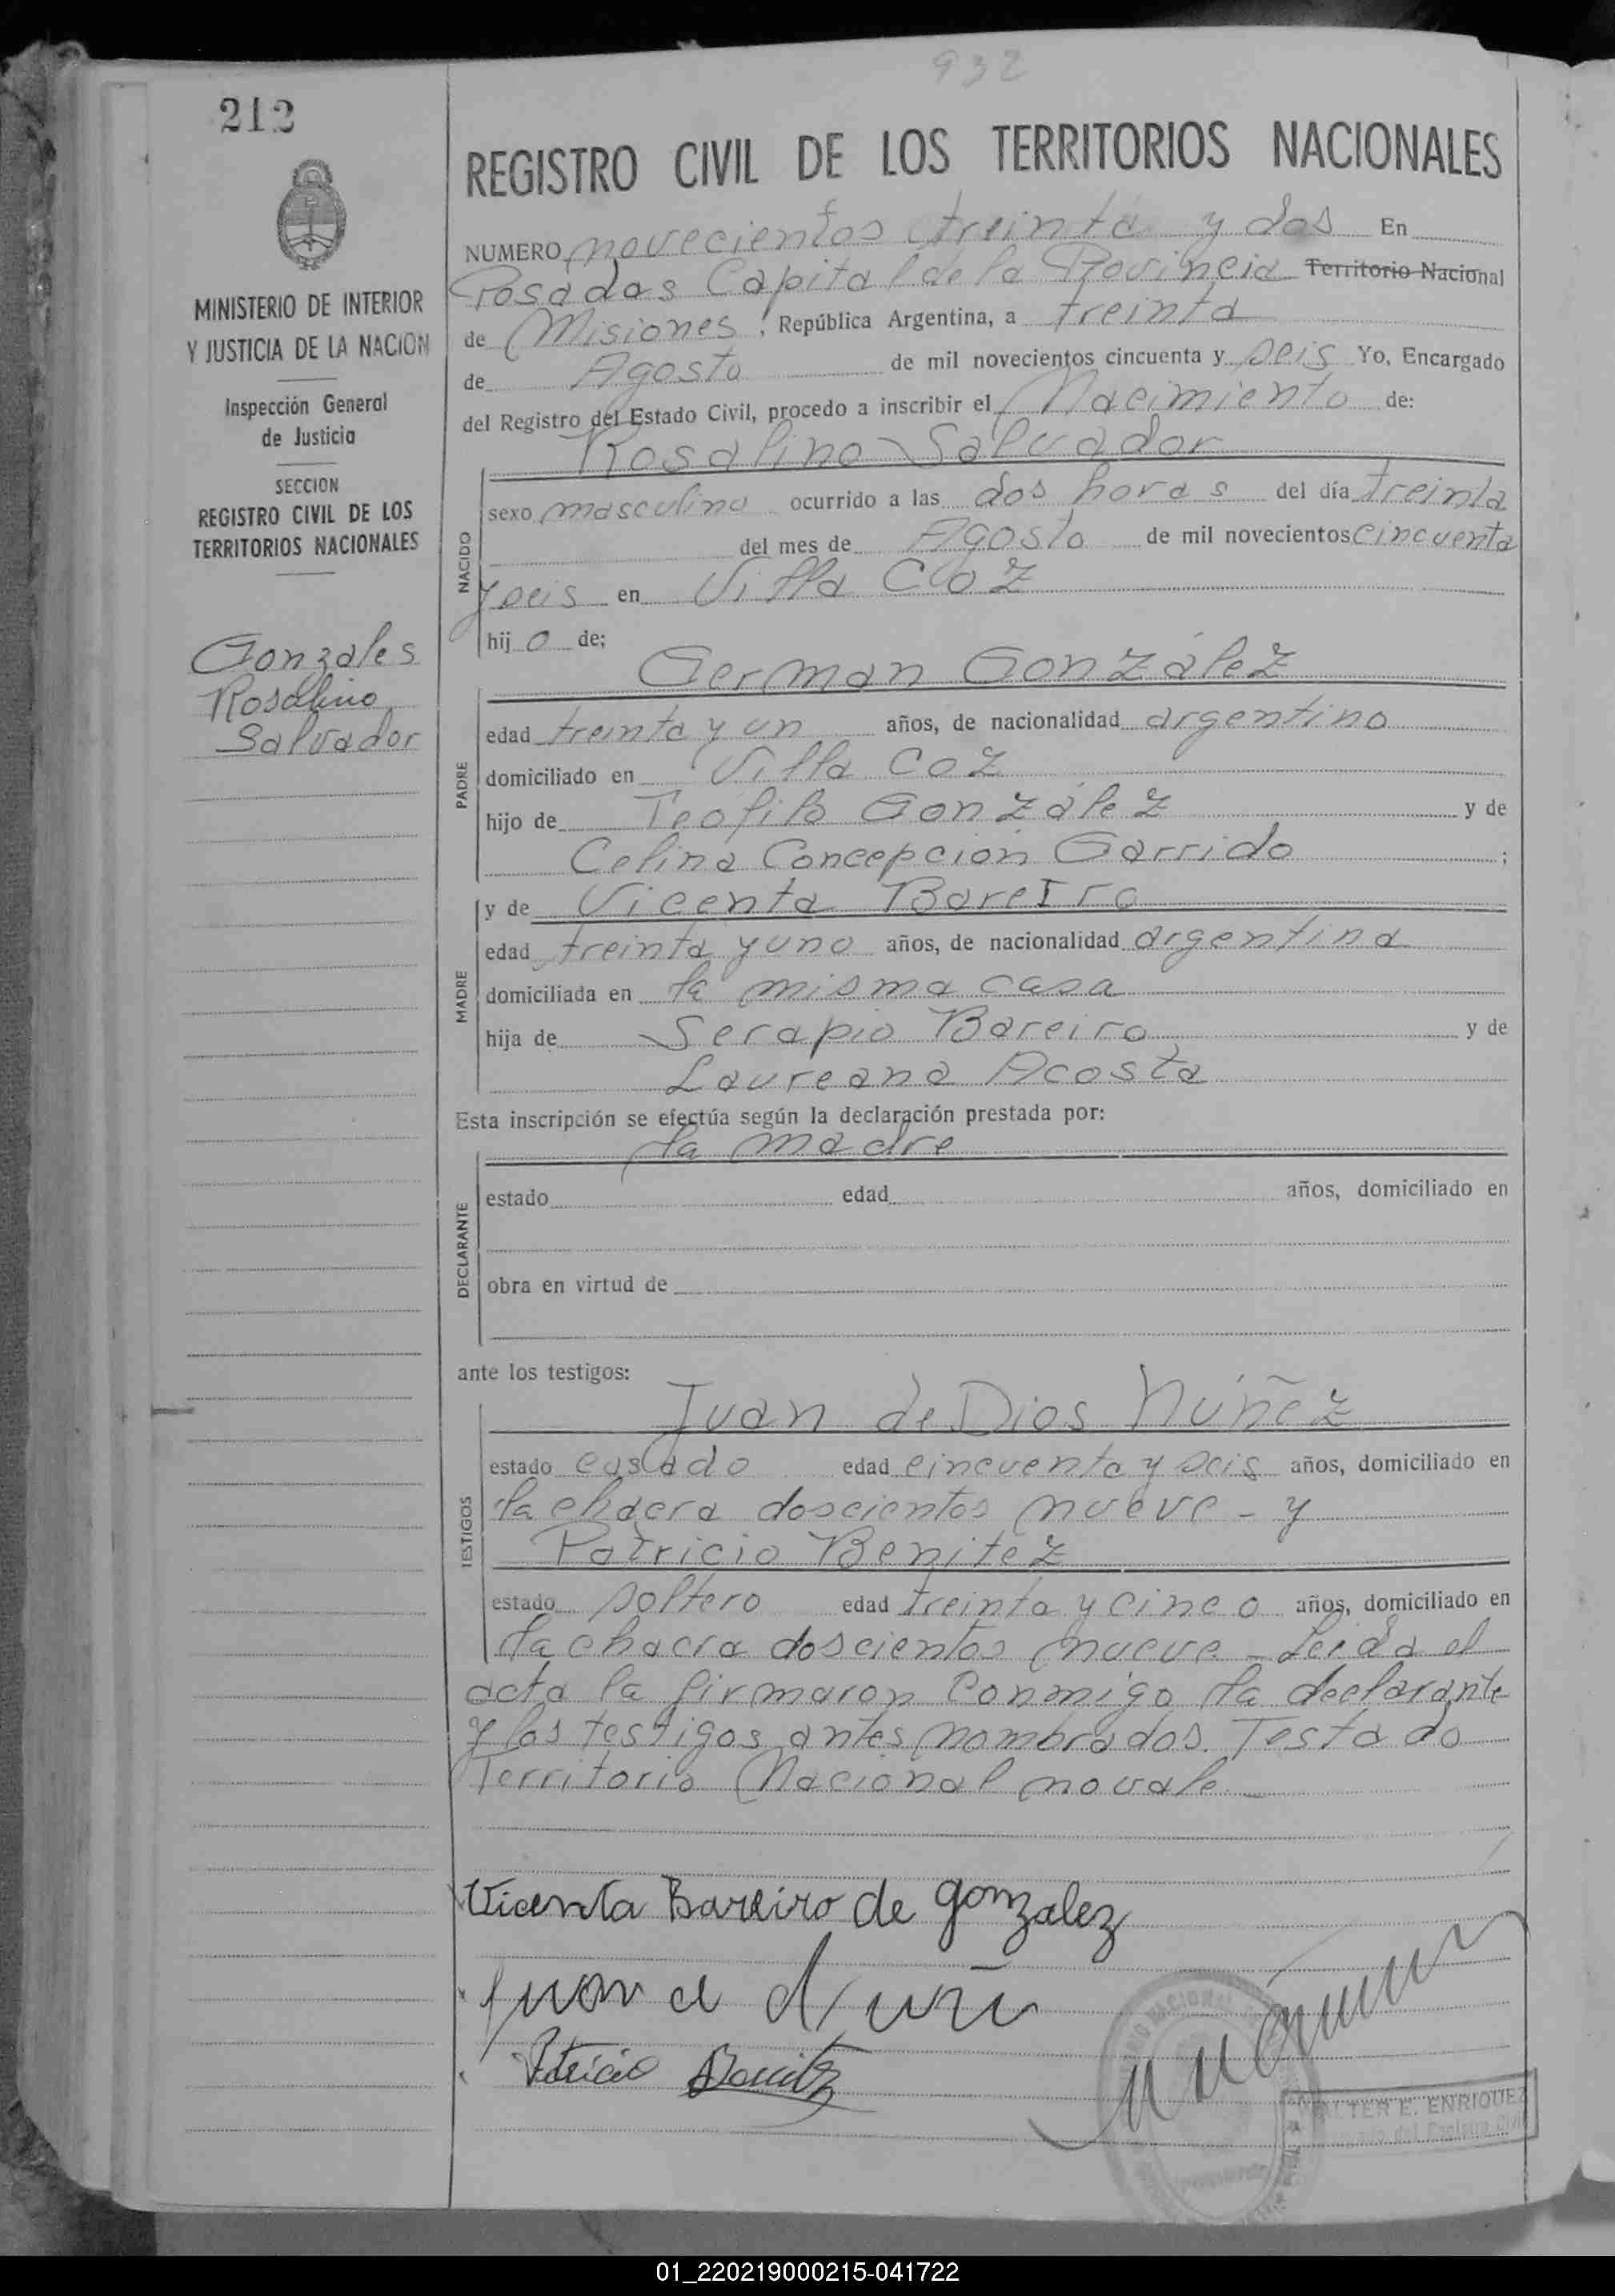 932
212
REGISTRO CIVIL DE LOS TERRITORIOS NACIONALES
MINISTERIO DE INTERIOR
Y JUSTICIA DE LA NACION
Inspección General
de Justicia
SECCION
REGISTRO CIVIL DE LOS
TERRITORIOS NACIONALES
Gonzales
Rosalino
Salvador
NUMERO novecientos treinta y dos En
Posadas Capital de la Provincia Territorio Nacional
de Misiones, República Argentina, a treinta
de Agosto de mil novecientos cincuenta y seis Yo, Encargado
del Registro del Estado Civil, procedo a inscribir el Nacimiento de:
Rosalino Salvador
NACIDO
sexo masculino ocurrido a las dos horas del día treinta
del mes de Agosto de mil novecientos cincuenta
y seis en Villa Coz
hijo de;
German González
PADRE
edad treinta y un años, de nacionalidad argentino
domiciliado en Villa Coz
hijo de Teofilo González y de
Celina Concepción Garrido ;
y de Vicenta BareIro
MADRE
edad treinta y uno años, de nacionalidad argentina
domiciliada en la misma casa
hija de Serapio Bareiro y de
Laureana Acosta
Esta inscripción se efectúa según la declaración prestada por:
la madre
DECLARANTE
estado edad años, domiciliado en
obra en virtud de
ante los testigos:
Juan de Dios Núñez
TESTIGOS
estado casado edad cincuenta y seis años, domiciliado en
la chacra doscientos nueve - y
Patricio Benitez
estado soltero edad treinta y cinco años, domiciliado en
la chacra doscientos nueve - Leida el
acta la firmaron conmigo la declarante
y los testigos antes nombrados. Testado
Territorio Nacional no vale
Vicenta Bareiro de gonzalez
Patricio Benitez
WALTER E. ENRIQUEZ
01_220219000215-041722